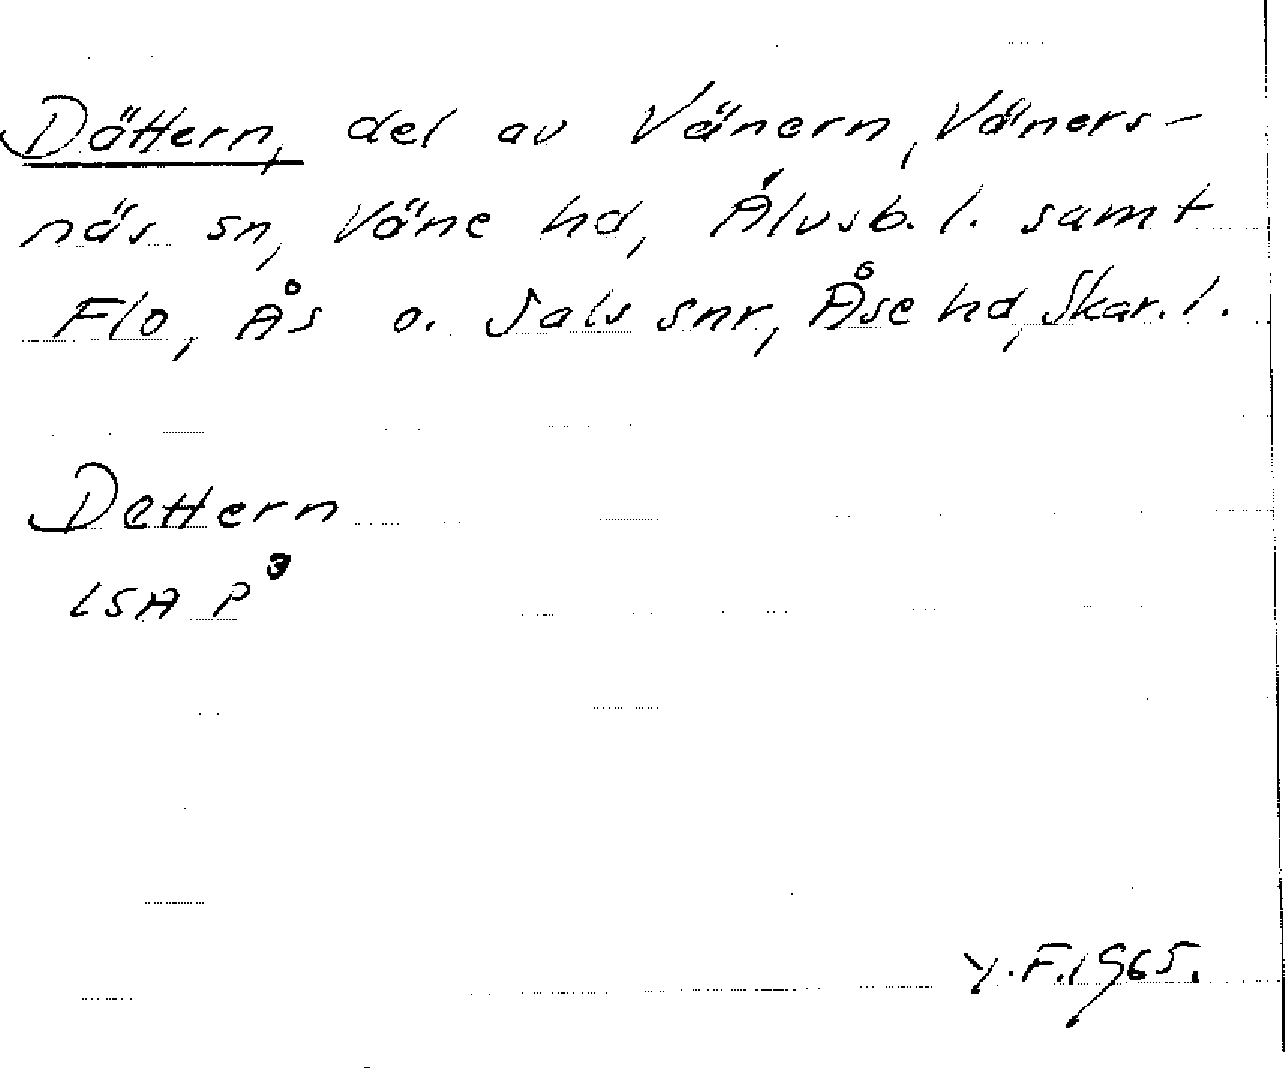 Dättern, del av Vänern, Väners-
näs sn, Väne hd, Älvsb. l. samt
Flo, Ås o. Sals snr, Åse hd, Skar. l.
Dettern
LSA P³
Y.F. 1965.